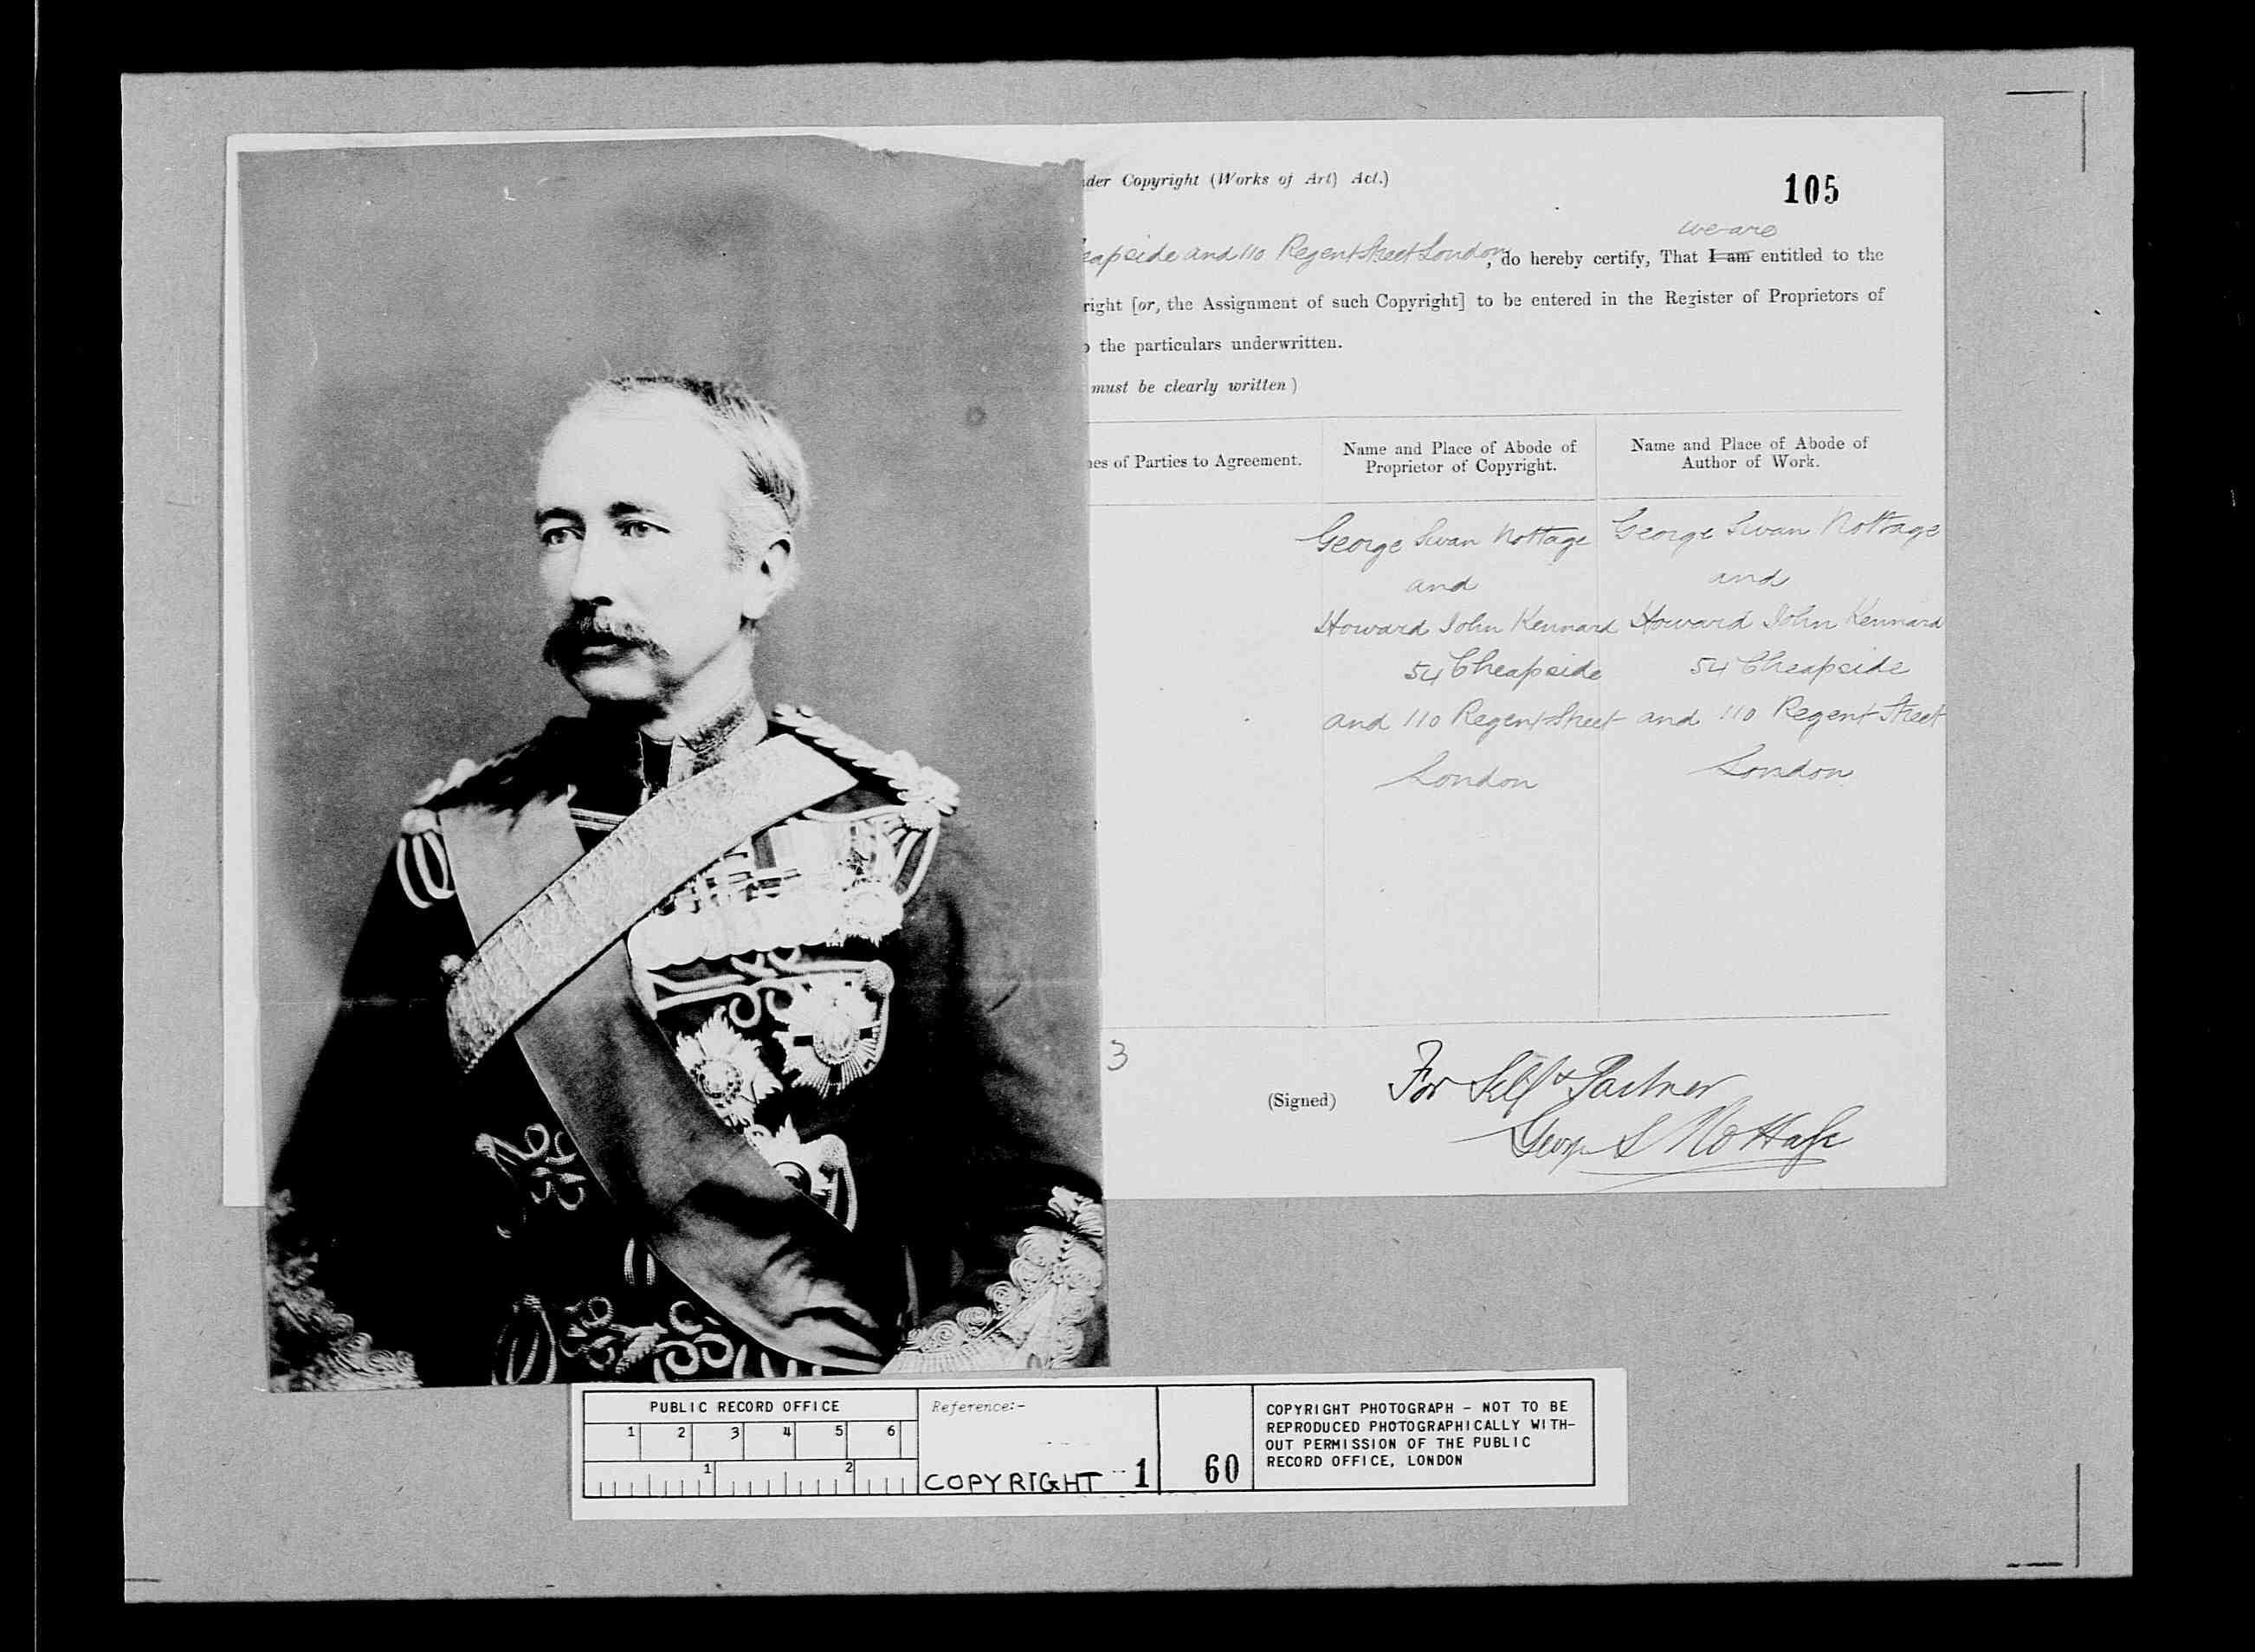 der Copyright (Works of Art) Act.)
105
we are
eapside and 110 Regent Street London, do hereby certify, That I am entitled to the
right [or, the Assignment of such Copyright] to be entered in the Register of Proprietors of
the particulars underwritten.
must be clearly written)
es of Parties to Agreement.
Name and Place of Abode of
Proprietor of Copyright.
Name and Place of Abode of
Author of Work.
George Swan Nottage
and
Howard John Kennard
54 Cheapside
and 110 Regent Street
London
George Swan Nottage
and
Howard John Kennard
54 Cheapside
and 110 Regent Street
London
3
(Signed)
For Self & Partner
George S Nottage
PUBLIC RECORD OFFICE
1 2 3 4 5 6
1 2
Reference:-
COPYRIGHT 1
60
COPYRIGHT PHOTOGRAPH - NOT TO BE
REPRODUCED PHOTOGRAPHICALLY WITH-
OUT PERMISSION OF THE PUBLIC
RECORD OFFICE, LONDON